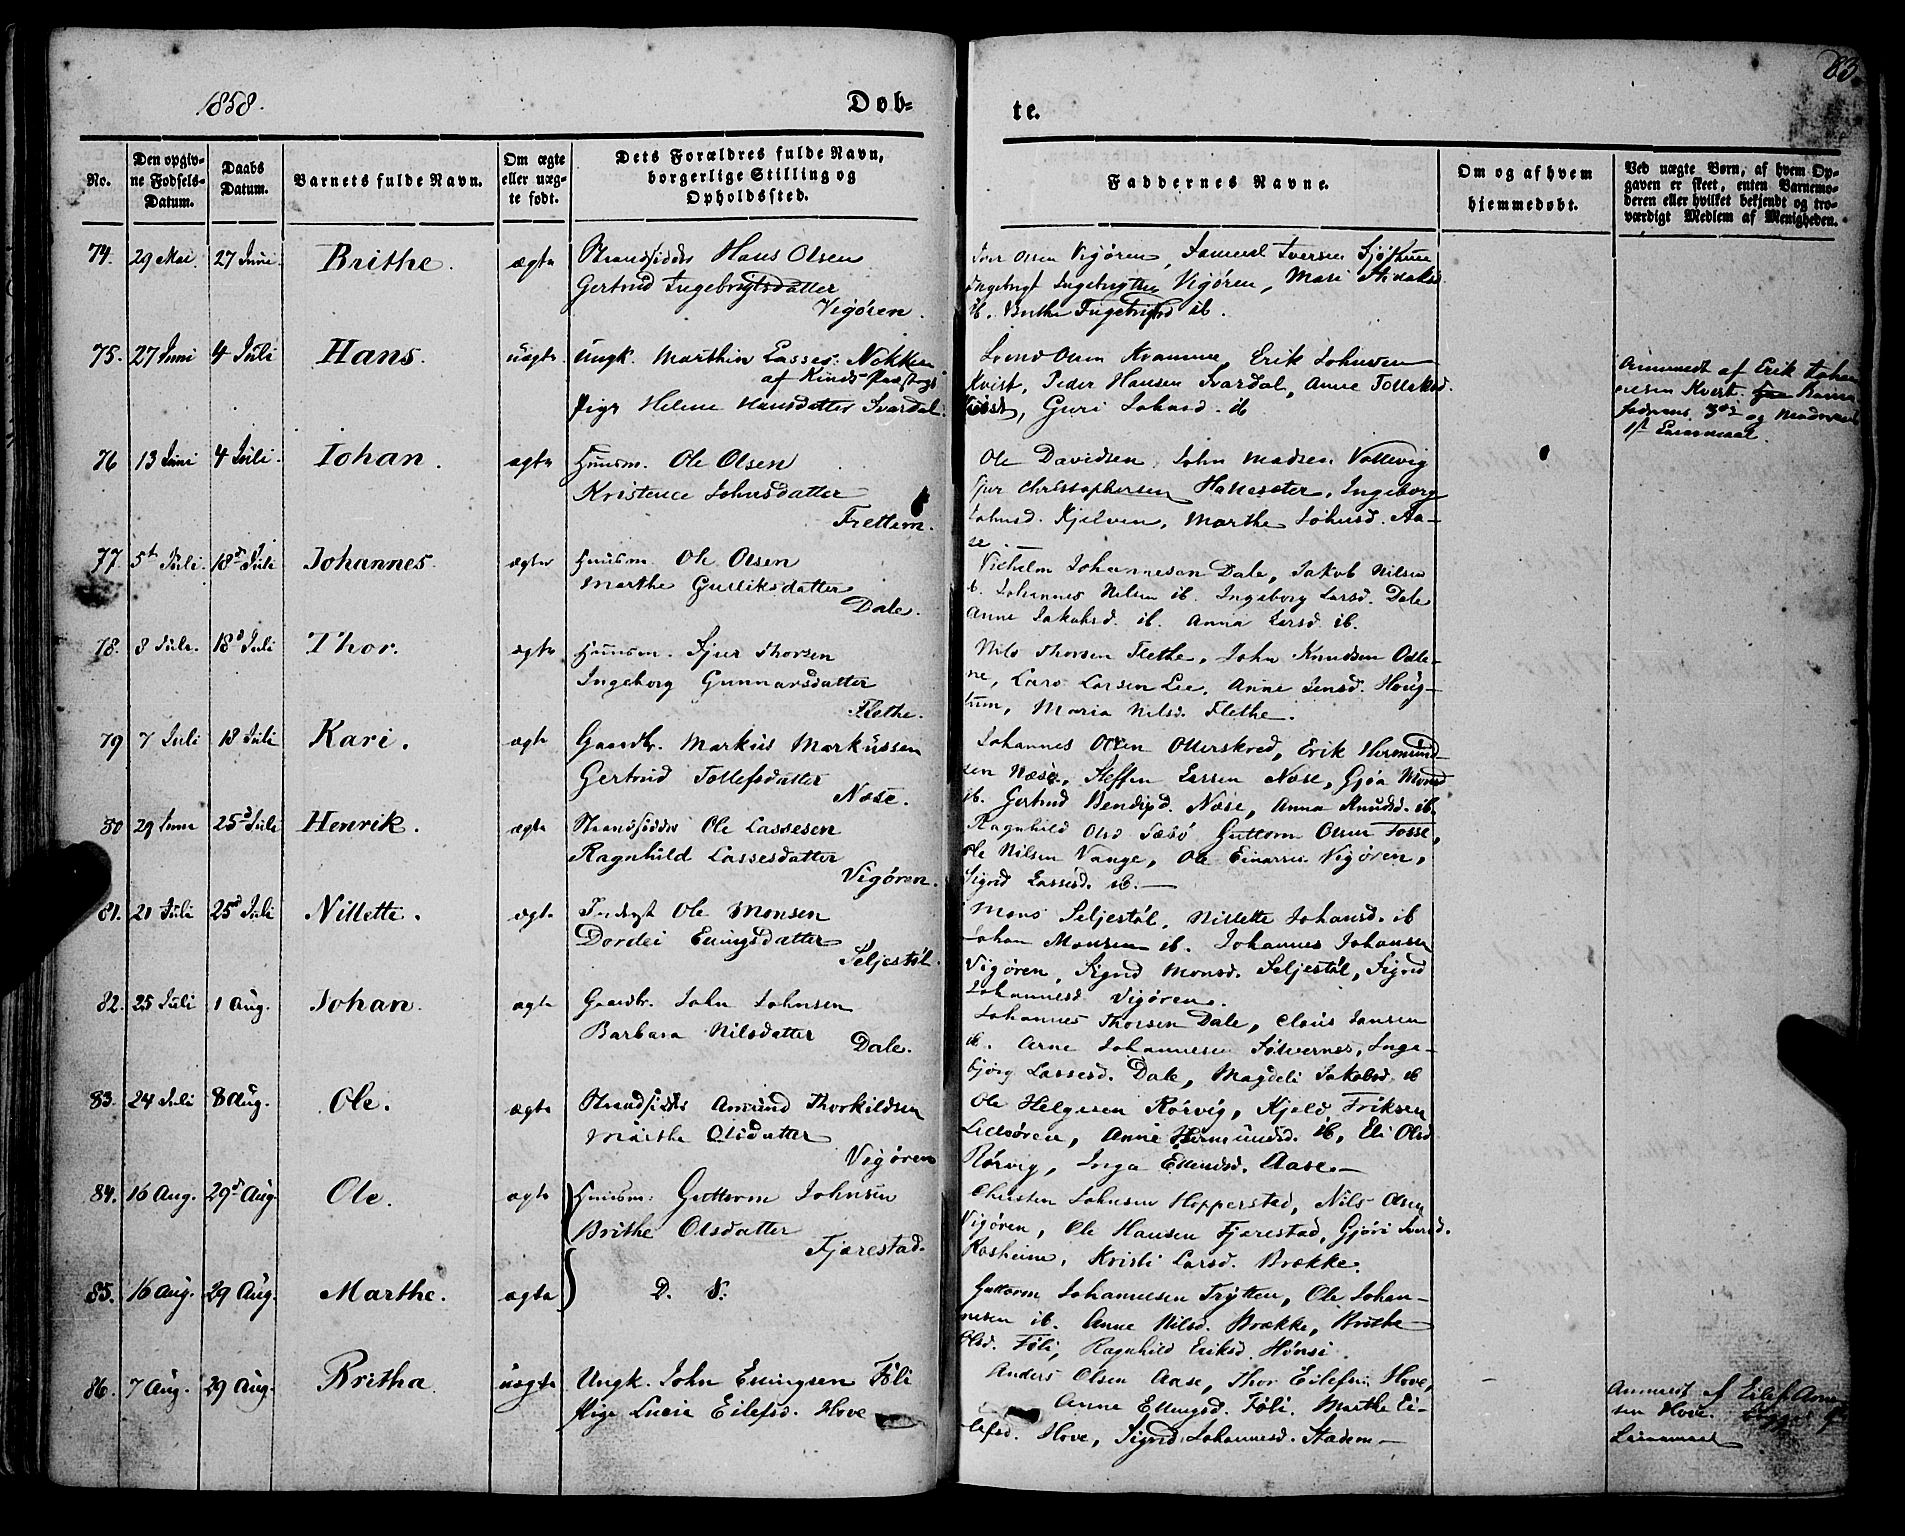 1858. Døb- te. 83
No. | Den opgiv- | Daabs | Barnets fulde Navn. | Om ægte | Dets Forældres fulde Navn, | Faddernes Navne. | Om og af hvem | Ved uægte Børn, af hvem Op-
ne Fødsels- | Datum. | eller uæg- | borgerlige Stilling og | hjemmedøbt. | gaven er skeet, enten Barnemo-
Datum. | te født. | Opholdssted. | deren eller hvilket bekjendt og tro-
værdigt Medlem af Menigheden.
74. 29 Mai. 27 Juni. Brithe. ægte Strandsidder Hans Olsen
Gertrud Ingebrigtsdatter
Vigøren.
Iver Olsen Vigøren, Samuel Iversen
Ingebrigt Vigøren, Mari
ib. Brithe ib.
75. 27 Juni 4 Juli Hans. uægte Ungk. Marthin Lasses. Nokken
af Kinds Præstegj.
Pige Helene Hansdatter Svardal.
Olsen Kvamme, Erik Johnsen
Kvist, Peder Hansen Svardal, Anne
Guri Johnsd. ib
Anmeldt af Erik Johan
nesen Kvist. Barne
faderens 3die og Moderens
1st Leiermaal.
76 13 Juni 4 Juli. Johan. ægte Huusm. Ole Olsen
Kristence Johnsdatter
Frettem.
Ole Davidsen, John Madsen Vollevig
Christophersen Ingeborg
Johnsd. Kjelven, Marthe Johnsd. Aa-
se. —
77. 5t Juli. 18d Juli Johannes. ægte Huusm Ole Olsen
Marthe Gulliksdatter
Dale.
Vilhelm Johannesen Dale, Jakob Nilsen
ib. Johannes Nilsen ib. Ingeborg Larsd. Dale
Anne Jakobsd. ib. Anna Larsd. ib.
78. 8 Juli. 18d Juli Thor. ægte Huusm. Sjur Thorsen
Ingeborg Gunnarsdatter
Flethe.
Nils Thorsen Flethe, John Knudsen
ne, Lars Larsen Lee, Anne Jensd. Houg-
tun, Maria Nilsd. Flethe.
79 7 Juli 18 Juli Kari. ægte Gaardbr. Markus Markussen
Gertrud Tollefsdatter
Næse.
Johannes Olsen Otterskred, Erik Hermund
sen Næse, Steffen Larsen Næse, Gjøa Monsd
ib. Gertrud Næse, Anna Knudsd. ib.
80 29 Juni 25d Juli Henrik. ægte Strandsidder Ole Lassesen
Ragnhild Lassesdatter
Vigøren.
Ragnhild Olsd Sæbø Guttorm Olsen Fosse,
Ole Nilsen Vange, Ole Einarsen Vigøren,
Sigrid Lassesd. ib. —
81. 21 Juli 25d Juli Nillette. ægte Inderst Ole Monsen
Dordei Ellingsdatter
Seljestøl.
Mons Seljestøl, Nillette Johansd. ib
Johan Monsen ib. Johannes Johansen
Vigøren, Sigrid Monsd. Seljestøl, Sigrid
Johannesd Vigøren.
82. 25 Juli 1 Aug. Johan. ægte Gaardbr. John Johnsen
Barbara Nilsdatter
Dale.
Johannes Thorsen Dale, Claus Jansen
ib. Arne Johannesen Inge-
bjørg Lassesd. Dale, Magdeli Jakobsd. ib
83. 24 Juli 8 Aug. Ole. ægte Strandsidder Amund Thorkildsen
Marthe Olsdatter
Vigøren
Ole Helgesen Rørvig, Kjeld Eriksen
Anne Hermundsd. ib, Eli Olsd
Rørvig, Inga Aase. —
84. 16 Aug. 29d Aug. Ole. ægte Huusm. Guttorm Johnsen
Brithe Olsdatter
Fjærestad.
Christen Johnsen Hopperstad, Nils Olsen
Vigøren, Ole Hansen Fjærestad, Gjøri
Kristi Larsd. Brække.
85. 16 Aug. 29 Aug. Marthe. ægte D. S.
Guttorm Johannesen Trytten, Ole Johan-
nesen ib. Anne Nilsd. Brække, Brithe
Olsd. Føli, Ragnhild Eriksd. Hønsi
86. 7 Aug. 29 Aug. Britha uægte Ungk. John Ellingsen Føli
Pige Lucie Eilefsd. Hove
Anders Olsen Aase, Thor Eilefsen Hove,
Anne Ellingsd. Føli. Marthe Ei-
lefsd. Hove, Sigrid Johannesd. Stadem —
Anmeldt af Eilef Arne
sen Hove.
Leiermaal